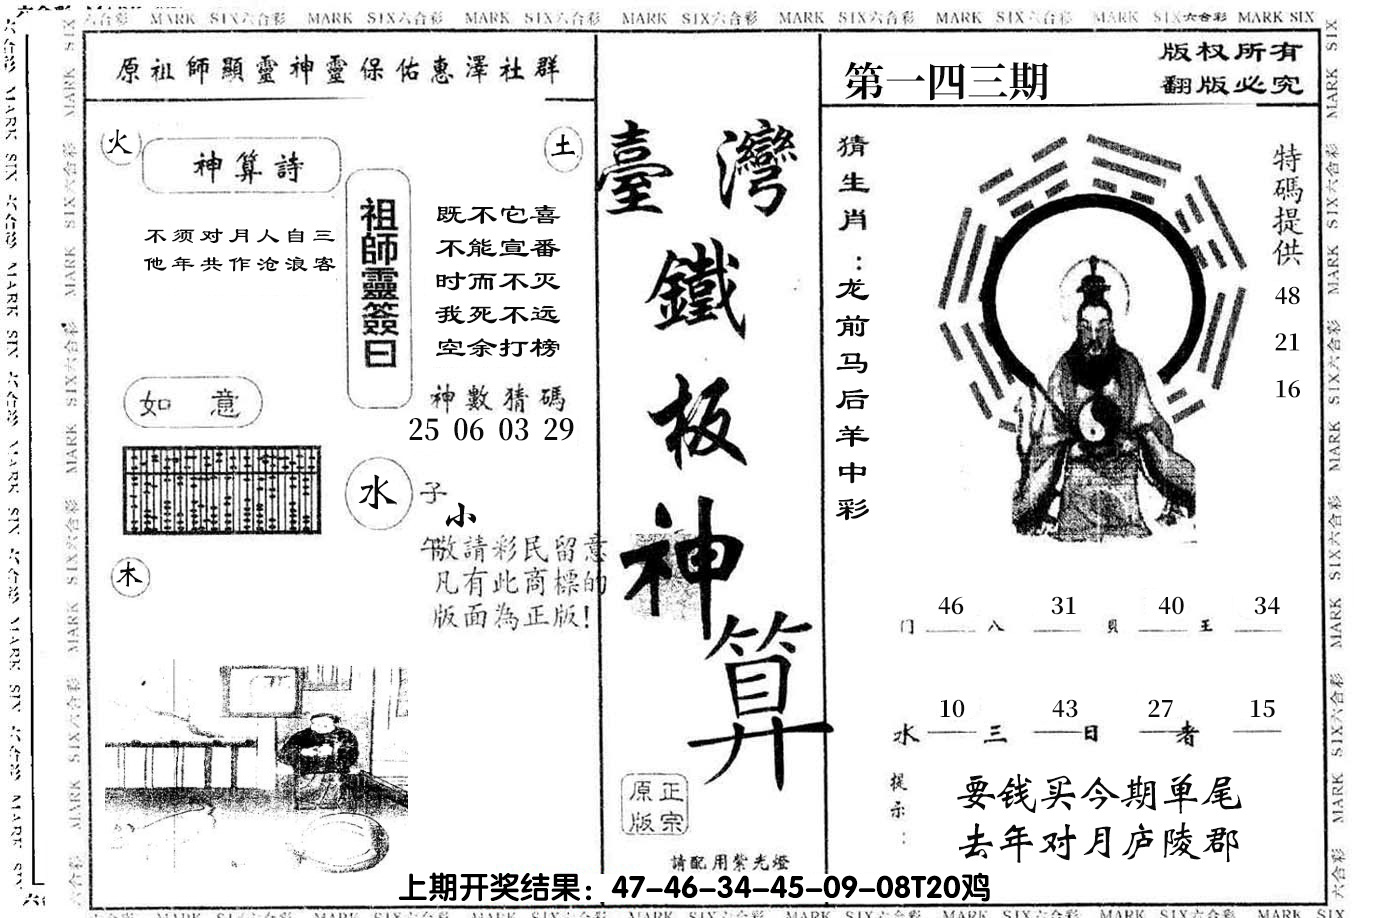 六合彩 MARK SIX六合彩 MARK SIX六合彩 MARK SIX六合彩 MARK SIX六合彩 MARK SIX六合彩 MARK SIX六合彩 MARK SIX六合彩 MARK SIX
原祖師顯靈神靈保佑惠澤社群
火
土
神算詩
不须对月人自三
他年共作沧浪客
祖師靈簽曰
既不它喜
不能宣番
时而不灭
我死不远
空余打榜
神數猜碼
25 06 03 29
如意
水
子
小
午
敬請彩民留意
凡有此商標的
版面為正版!
木
臺灣
鐵
板
神
算
正宗
原版
請配用紫光燈
第一四三期
版权所有
翻版必究
猜生肖:龙前马后羊中彩
特碼提供
48
21
16
46 31 40 34
门 八 貝 王
10 43 27 15
水 三 日 者
提示:
要钱买今期单尾
去年对月庐陵郡
上期开奖结果：47-46-34-45-09-08T20鸡